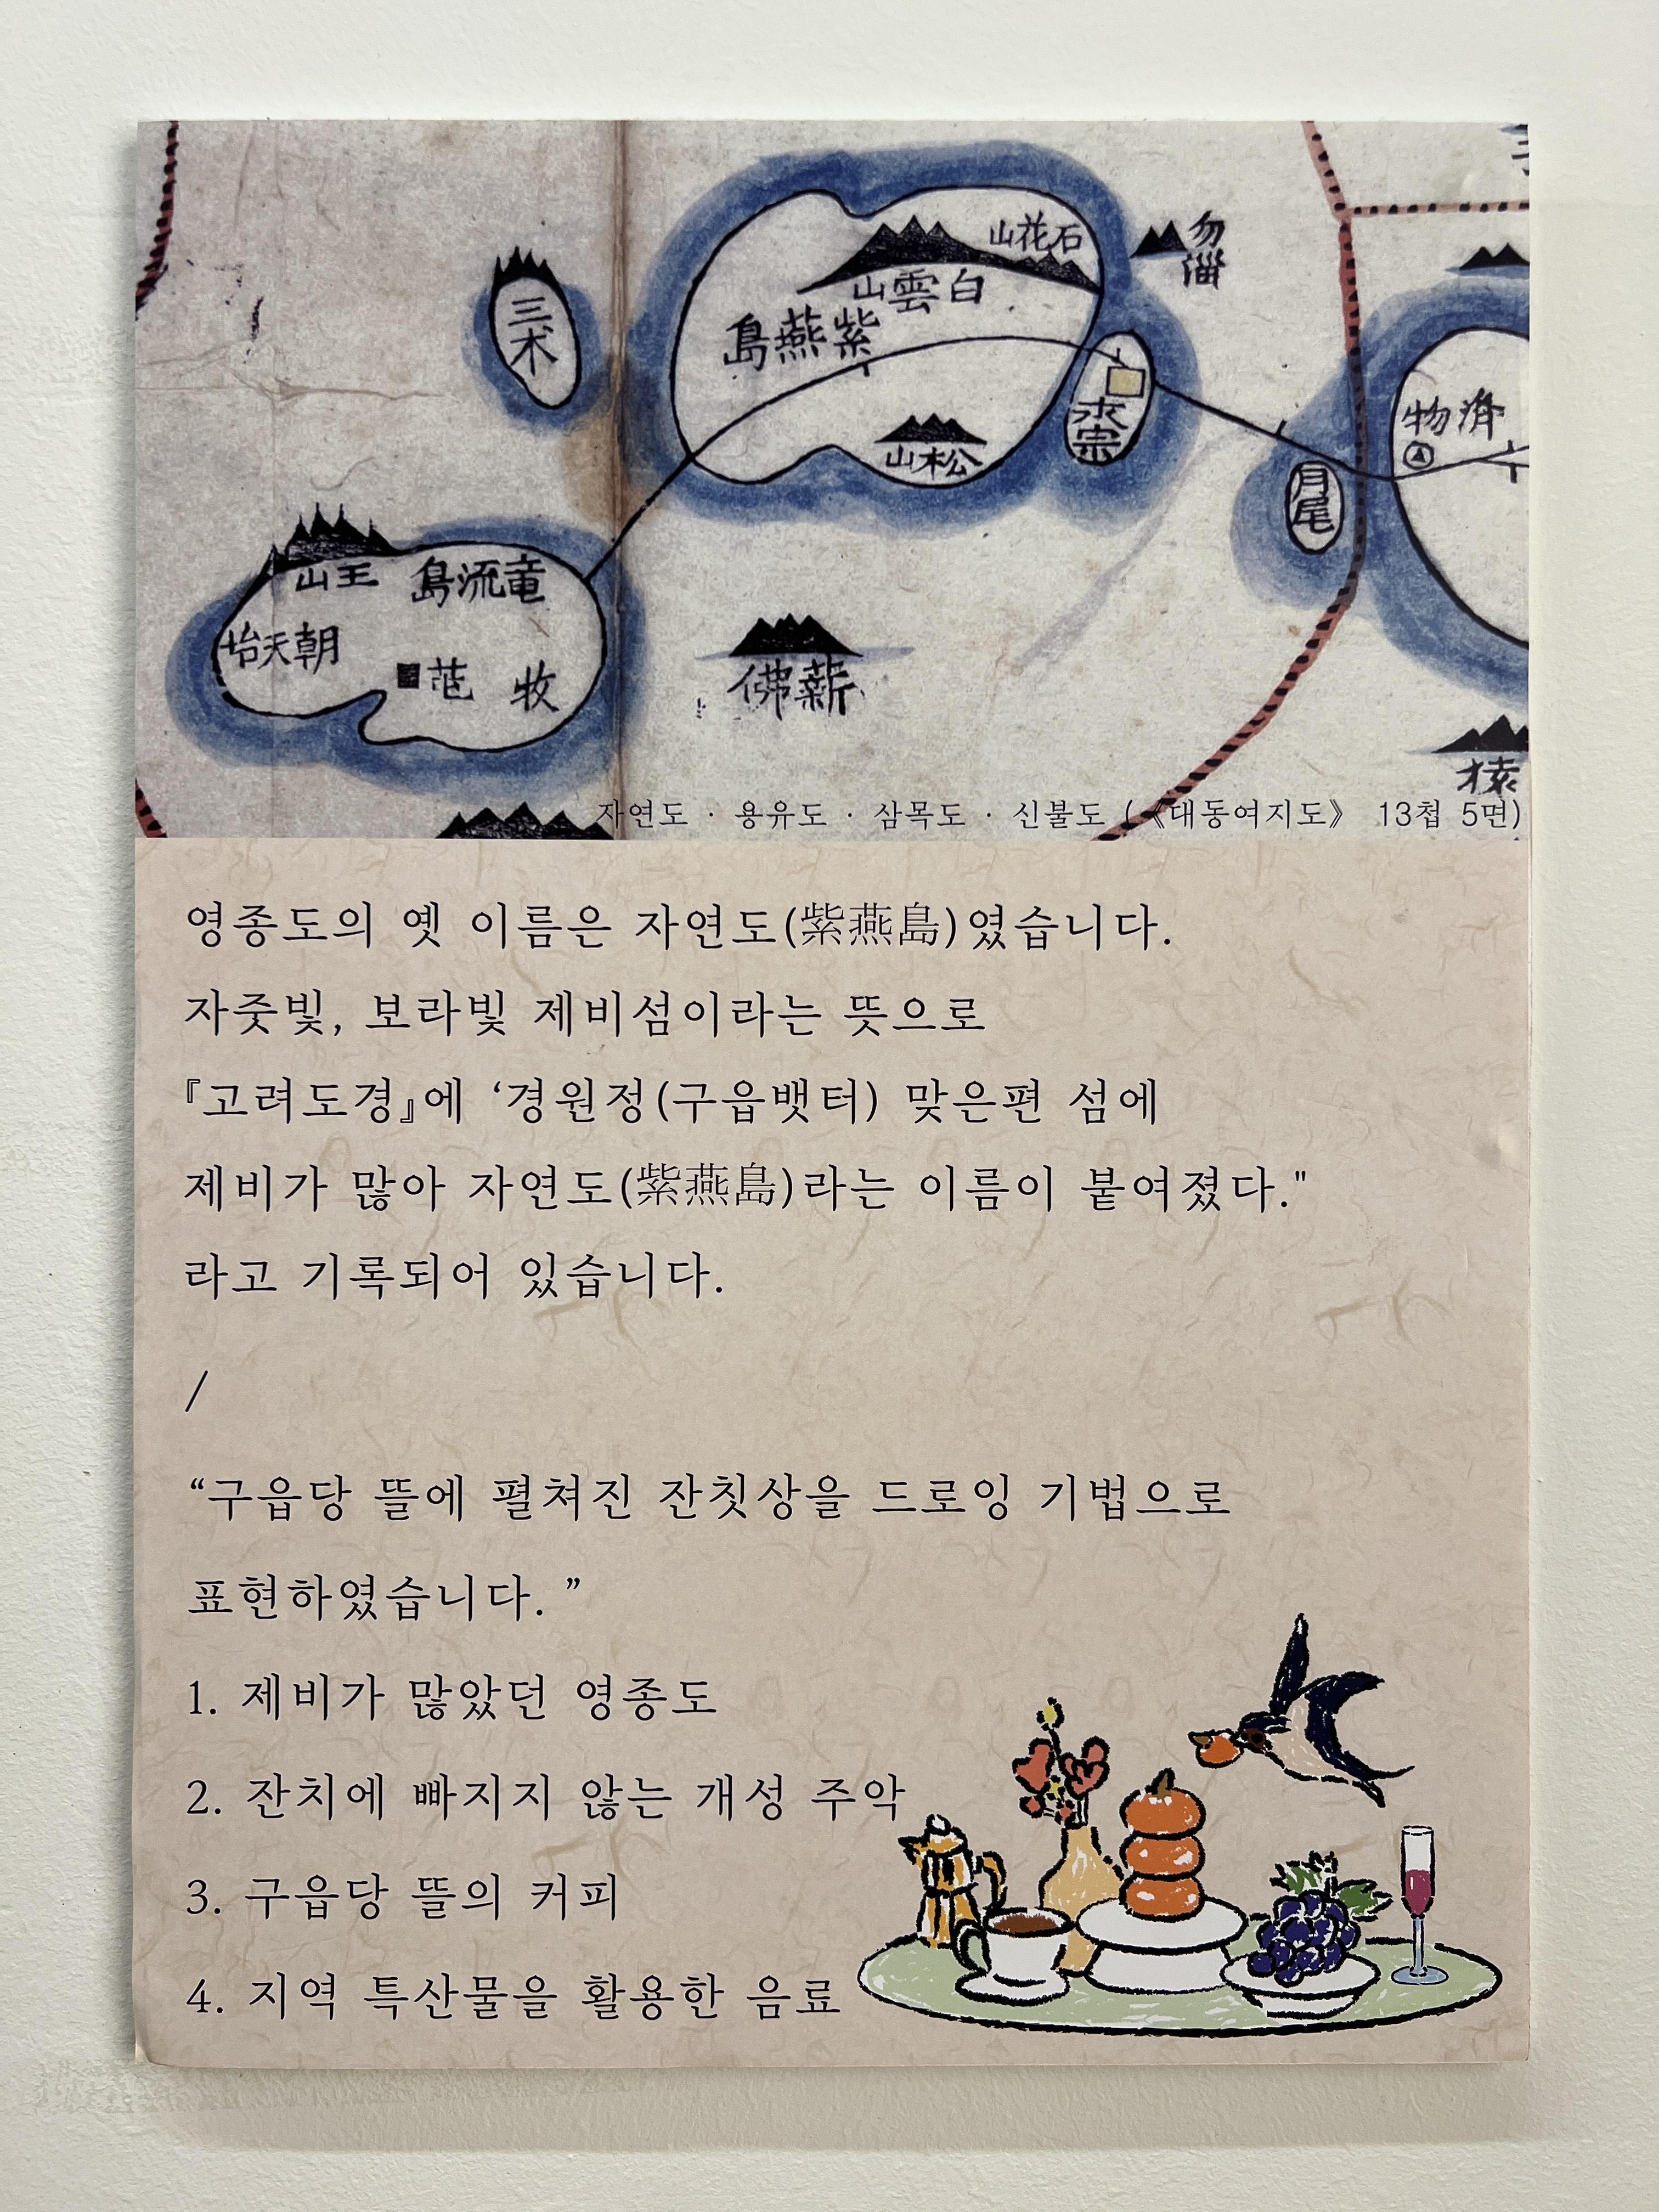 石花山
勿淄
白雲山
紫燕島
三木
永宗
松山
濟物
月尾
王山
龍流島
朝天
牧
薪佛
猿
자연도 · 용유도 · 삼목도 · 신불도 (《대동여지도》 13첩 5면)
영종도의 옛 이름은 자연도(紫燕島)였습니다.
자줏빛, 보라빛 제비섬이라는 뜻으로
『고려도경』에 ‘경원정(구읍뱃터) 맞은편 섬에
제비가 많아 자연도(紫燕島)라는 이름이 붙여졌다."
라고 기록되어 있습니다.
/
“구읍당 뜰에 펼쳐진 잔칫상을 드로잉 기법으로
표현하였습니다. ”
1. 제비가 많았던 영종도
2. 잔치에 빠지지 않는 개성 주악
3. 구읍당 뜰의 커피
4. 지역 특산물을 활용한 음료